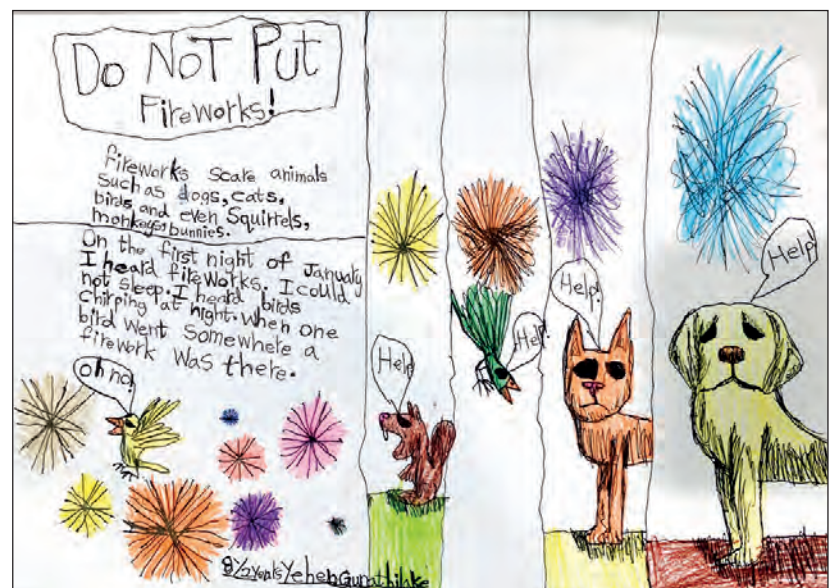 Do NoT Put
Fireworks!
fireworks scare animals
such as dogs, cats,
birds and even Squirrels,
monkeys bunnies.
On the first night of January
I heard fireworks. I could
not sleep. I heard birds
chirping at night. When one
bird went somewhere a
firework was there.
oh no!
8 1/2 years Yeheb Gunathilake
Help
Help!
Help!
Help!